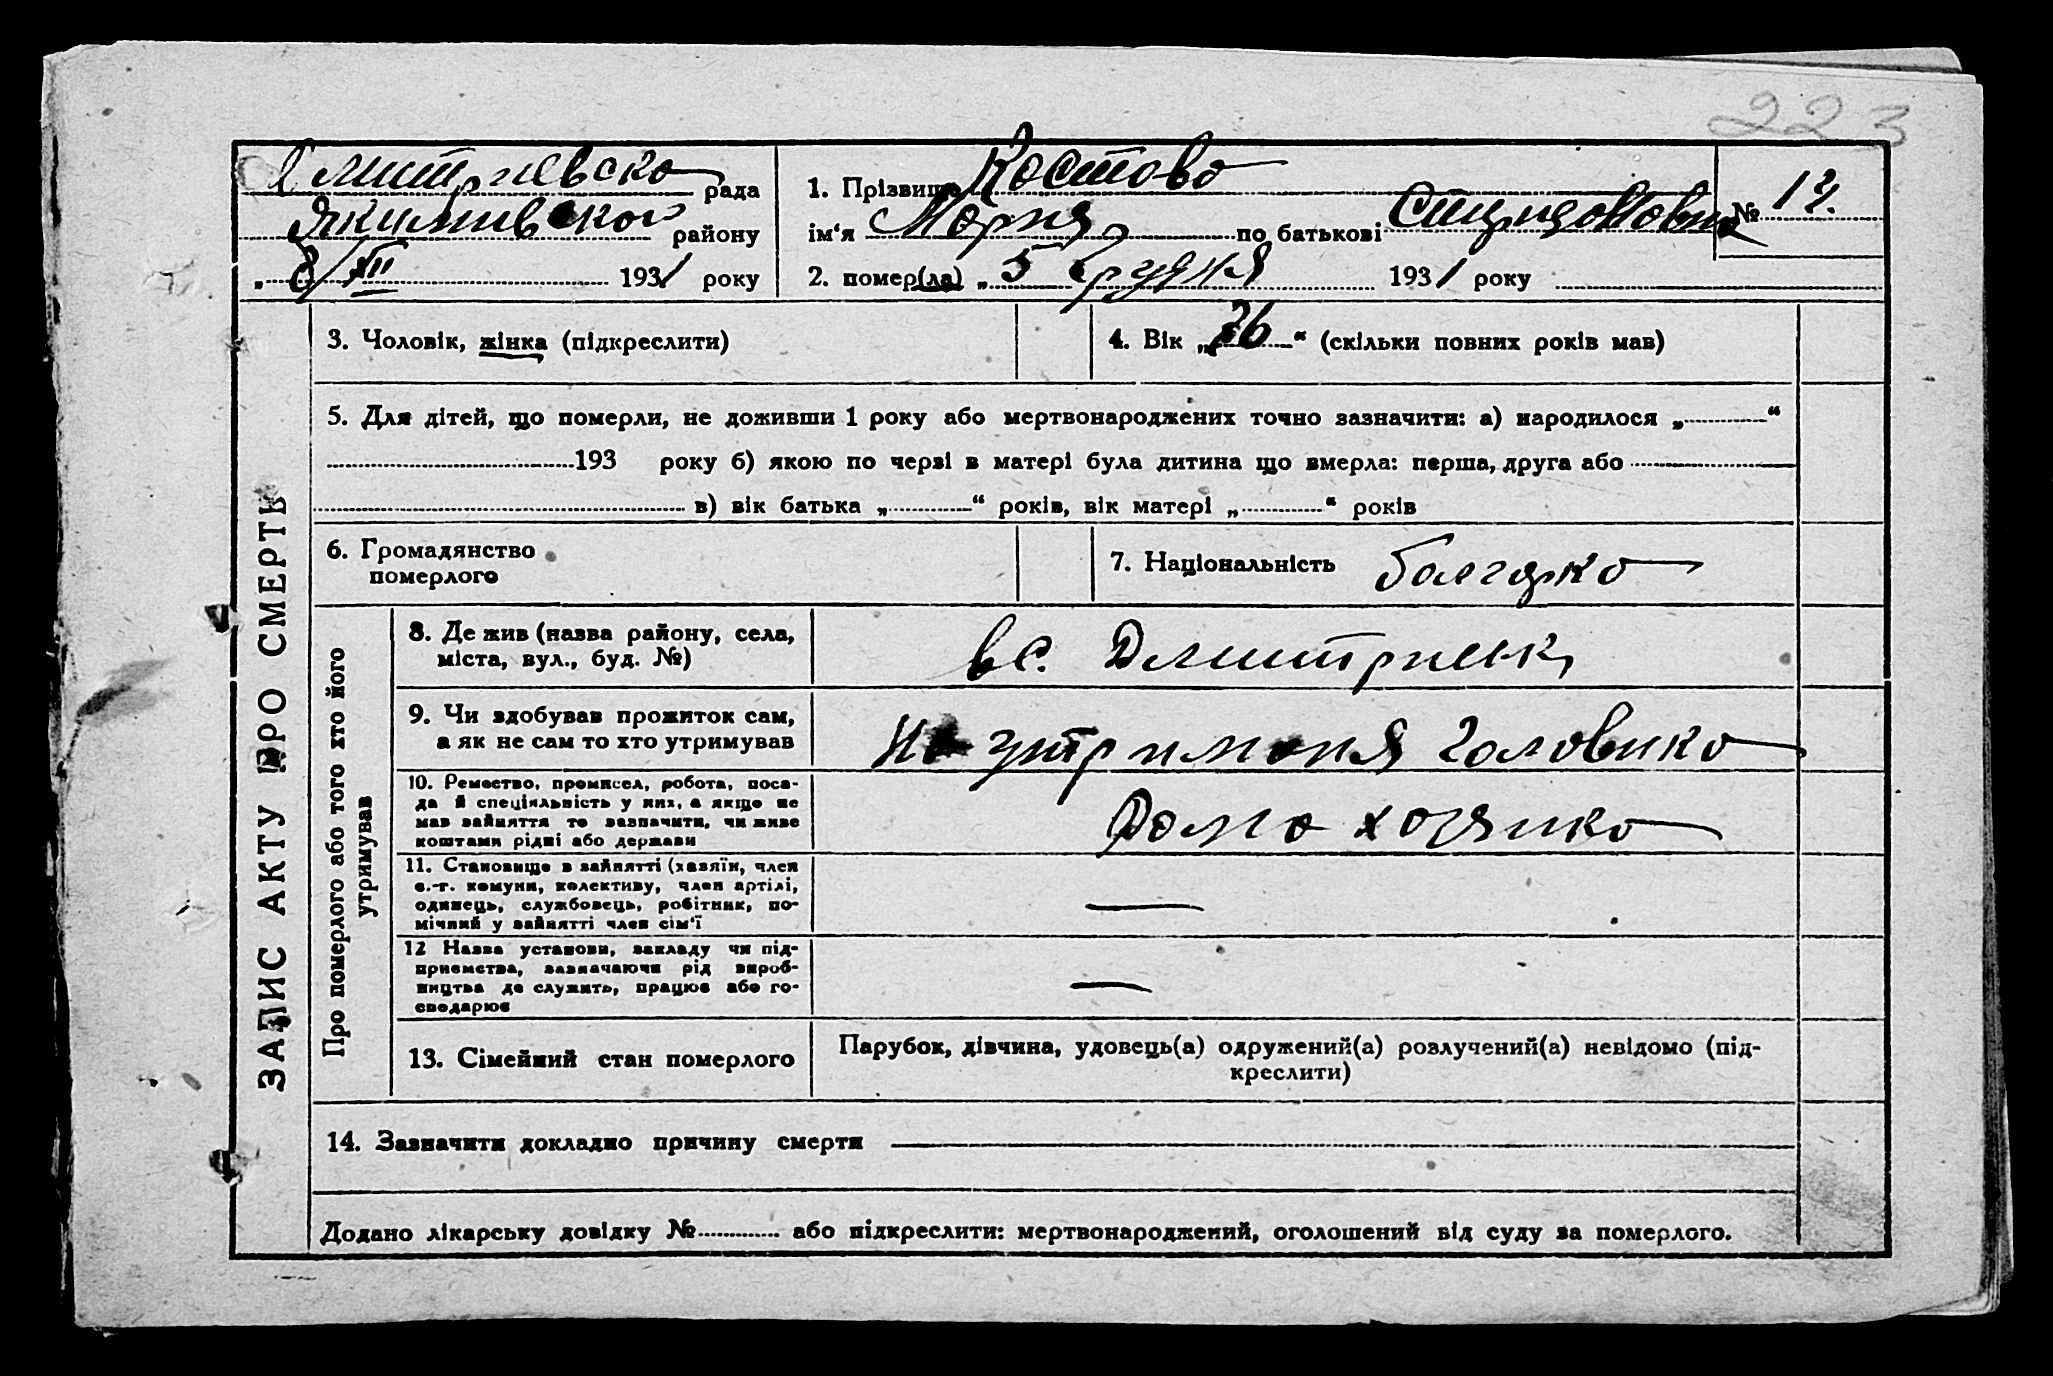 223
Дмитриевска рада
Якимивского району
„ 8/XII 1931 року
1. Прізвище Костова
ім‘я Мария по батькові
2. помер(ла) „ 5 Грудня 1931 року
№
3. Чоловік, жінка (підкреслити)
4. Вік „ “ (скільки повних років мав)
5. Для дітей, що померли, не доживши 1 року або мертвонароджених точно зазначити: а) народилося „ “
193 року б) якою по черзі в матері була дитина що вмерла: перша, друга або
в) вік батька „ “ років, вік матері „ “ років
6. Громадянство
померлого
7. Національність болгарка
ЗАПИС АКТУ ПРО СМЕРТЬ
Про померлого або того хто його
утримував
8. Де жив (назва району, села,
міста, вул., буд. №)
в с. Дмитриенк
9. Чи здобував прожиток сам,
а як не сам то хто утримував
На утриманя чоловика
10. Ремество, промисел, робота, поса-
да й спеціяльність у них, а якщо не
мав зайняття то зазначити, чи живе
коштами рідні або держави
Домохозяика
11. Становище в зайнятті (хазяїн, член
с.-г. комуни, колективу, член артілі,
одинець, службовець, робітник, по-
мічний у зайнятті член сім‘ї
—
12 Назва установи, закладу чи під-
приємства, зазначаючи рід вироб-
ництва де служить, працює або го-
сподарює
—
13. Сімейний стан померлого
Парубок, дівчина, удовець(а) одружений(а) розлучений(а) невідомо (під-
креслити)
14. Зазначити докладно причину смерти
Додано лікарську довідку № або підкреслити: мертвонароджений, оголошений від суду за померлого.